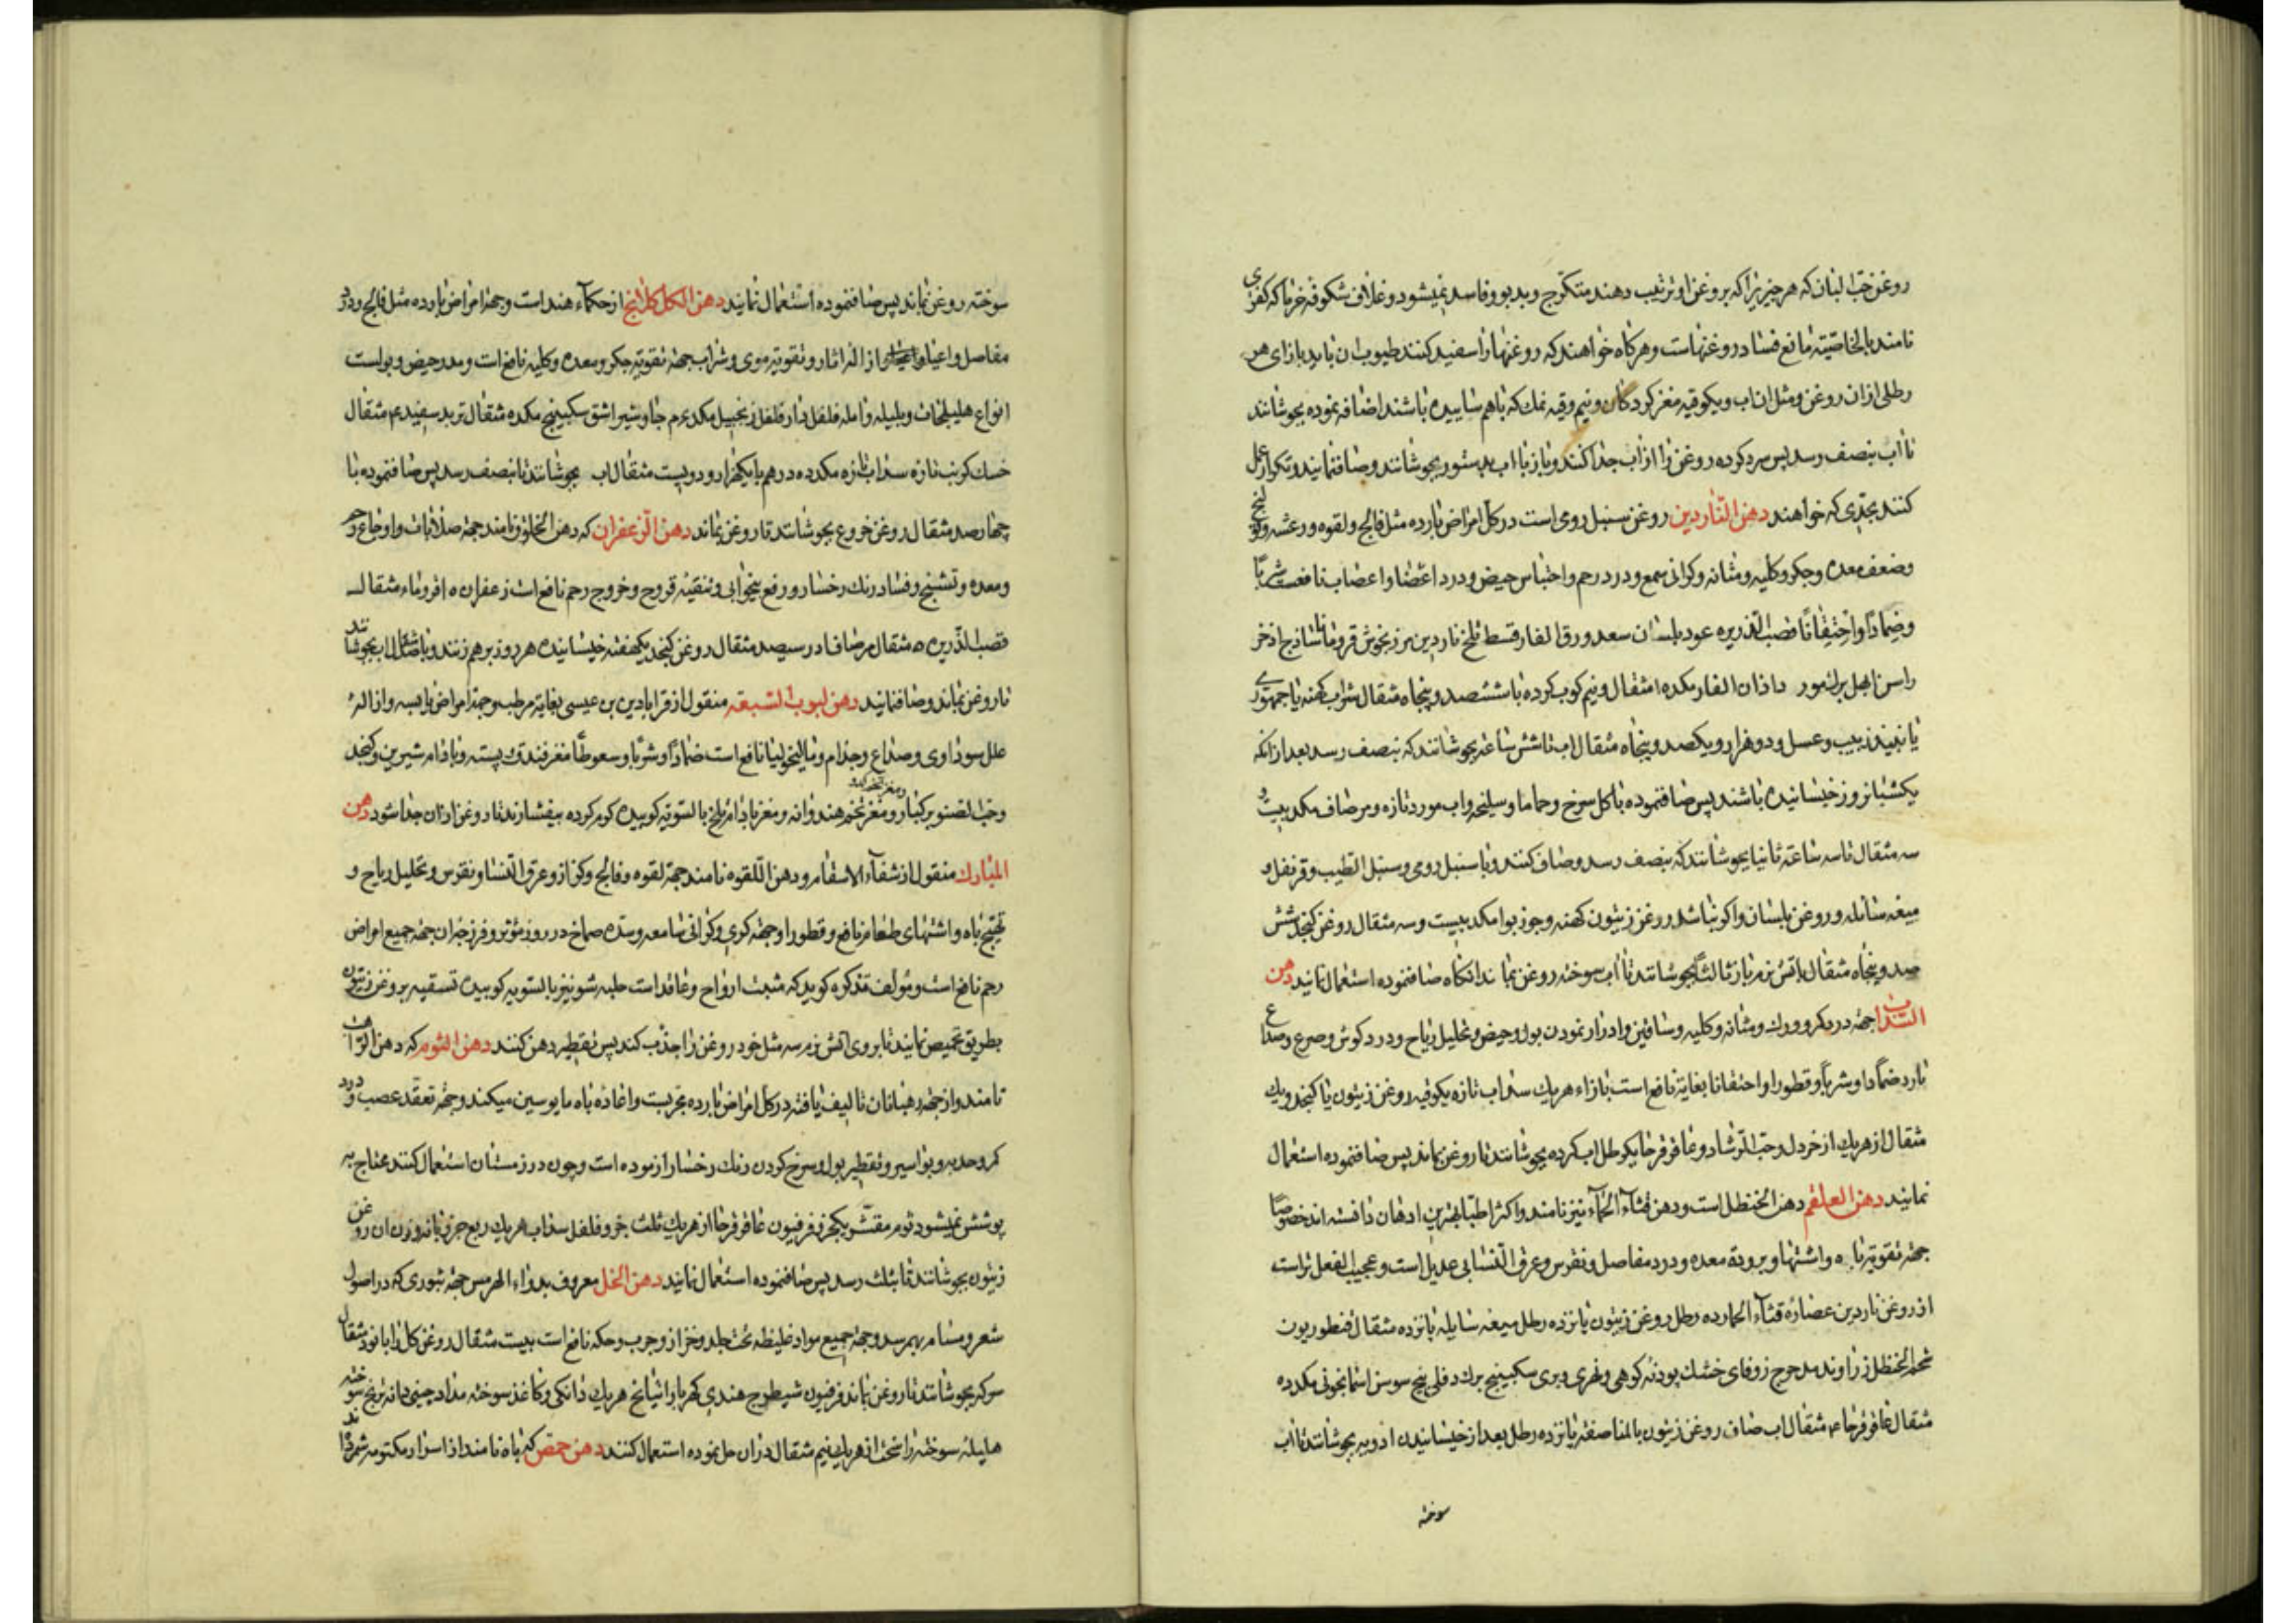 روغن حب البان که هر چیزیرا که بروغن او ترتیب دهند متکرج و بدبو و فاسد نمیشود و غلاف شکوفه خرما که کفری
نامند بالخاصیته مانع فساد روغنهاست و هرکاه خواهند که روغنها را سفید کنند طیوب ان باید بازای هر
رطلی ازان روغن و مثل ان اب و یکوقیه مغز کردکان و نیم وقیه نمک که باهم ساییده باشند اضافه نموده بجوشانند
تا اب بنصف رسد پس سرد کرده روغن را از اب جدا کنند و باز با اب بدستور بجوشانند و صاف نمایند و تکرار عمل
کنند بحدی که خواهند دهن الناردین روغن سنبل رومی است در کل امراض بارده مثل فالج و لقوه و رعشه و
وضعف معده و جکر و کلیه و مثانه و کرانی سمع و درد رحم و احتباس حیض و درد اعضا و اعصاب نافعست شربا
وضمادا و احتقانا قصب الذریره عود بلسان سعد ورق الغار قسط تلخ ناردین مرزنجوش قردمانا ساذج اذخر
راسن ابهل برک مورد اذان الفار مکد ده مثقال و نیم کوب کرده با ششصد و پنجاه مثقال شراب کهنه یا جمهوری
یا نبیذ زبیب و عسل و دو هزار و یکصد و پنجاه مثقال اب تا شش ساعه بجوشانند که بنصف رسد بعد ازانکه
یکشبانروز خیسانیده باشند پس صاف نموده با کل سرخ و حماما و سلیخه و اب مورد تازه و مر صاف مکد بیست و
سه مثقال تا سه ساعة ثانیا بجوشانند که بنصف رسد و صاف کنند و با سنبل رومی و سنبل الطیب و قرنفل و
میعه سائله و روغن بلسان و اکر نباشد روغن زیتون کهنه و جوز بوا مکد بیست و سه مثقال روغن کنجد شش
صد و پنجاه مثقال باتش نرم باز ثالثا بجوشانند تا اب سوخته روغن بماند انکاه صاف نموده استعمال نمایند دهن
السداب جهة درد کمر و ورک و مثانه و کلیه و ساقین و ادرار نمودن بول و حیض و تحلیل ریاح و درد کوش و صرع و صداع
بارد ضمادا و شربا و قطورا و احتقانا بغایة نافع است بازاء هر یک سداب تازه یکوقیه روغن زیتون یا کنجد و یک
مثقال از هر یک از خردل و حب الرشاد و عاقرقرحا یکرطل اب کرده بجوشانند تا روغن بماند پس صاف نموده استعمال
نمایند دهن العلقم دهن الحنظل است و دهن قثاء الحمار نیز نامند و اکثر اطبا بهترین ادهان دانسته اند خصوصا
جهة تقویة باه و اشتها و برودة معده و درد مفاصل و نقرس و عرق النسا بی عدیل است و عجیب الفعل تر است
از روغن ناردین عصاره قثاء الحمار ده رطل روغن زیتون پانزده رطل میعه سایله پانزده مثقال قنطوریون
شحم الحنظل زراوند مدحرج زوفای خشک پودنه کوهی و نهری و بری سکبینج برک دفلی بیخ سوسن اسمانجونی مکد ده
مثقال عاقرقرحا ۴ مثقال اب صاف روغن زیتون بالمناصفة پانزده رطل بعد از خیسانیدن ادویه بجوشانند تا اب
سوخته
سوخته روغن بماند پس صاف نموده استعمال نمایند دهن الکلکلانج از حکماء هند است و جهة امراض بارده مثل فالج و درد
مفاصل و اعیا و از اله اثار و تقویه موی و شراب جهة تقویة جکر و معده و کلیه نافع است و مدر حیض و بولست
انواع هلیلجات و بلیله و امله فلفل دارفلفل زنجبیل مکد جاوشیر اشق سکبینج مکد ده مثقال تربد سفید مثقال
خسک کوبیده تازه سداب تازه مکد ده درهم با یکهزار و دویست مثقال اب بجوشانند تا بنصف رسد پس صاف نموده با
چهارصد مثقال روغن خروع بجوشانند تا روغن بماند دهن الزعفران که دهن الخلوق نامند جهة صلابات و اوجاع رحم
و معده و تشنج و فساد رنک رخسار و رفع بیخوابی و تنقیه قروح و خروج رحم نافع است زعفران مثقال
قصب الذریره ۵ مثقال مر صاف در سیصد مثقال روغن کنجد یکهفته خیسانیده هر روز برهم زنند و با اب بجوشانند
تا روغن بماند و صاف نمایند دهن لبوب السبعه منقول از قرابادین بن عیسی بغایة مرطب و جهة امراض یابسه و ازاله
علل سوداوی و صداع و جذام و مالیخولیا نافع است ضمادا و شربا و سعوطا مغز فندق پسته و بادام شیرین و کنجد
ومغز تخم کدو
وحب الصنوبر کبار و مغز تخم هندوانه و مغز بادام تلخ بالسویه کوبیده کرم کرده بیفشارند تا روغن ازان جدا شود دهن
المبارک منقول از شفاء الاسقام و دهن اللقوه نامند جهة لقوه و فالج و کزاز و عرق النسا و نقرس و تحلیل ریاح و
تهییج باه و اشتهای طعام نافع و قطورا و جهة کری و کرانی سامعه و سده صماخ در روز مؤثر و فرزجه ان جهة جمیع امراض
رحم نافع است و مؤلف تذکره کوید که مثبت ارواح و عاقد است حلبه شونیز بالسویه کوبیده تسقیه بروغن زیتون
بطریق تحمیص نمایند تا بروی اتش نرم سه مثل خود روغن را جذب کند پس تقطیر دهن کنند دهن الثوم که دهن الراهب
نامند و از جهة رهبانان تالیف یافته در کل امراض بارده مجربست و اعاده باه مایوسین میکند و جهة تعقد عصب و درد
کمر و حدبه و بواسیر و تقطیر بول و سرخ کردن رنک رخسار ازموده است و چون در زمستان استعمال کنند محتاج به
پوشش نمیشود ثوم مقشر یکجزو فرفیون عاقرقرحا از هر یک ثلث جزو فلفل سداب هر یک ربع جزو بانزده وزن ان روغن
زیتون بجوشانند تا بثلث رسد پس صاف نموده استعمال نمایند دهن الخل معروف بدواء الهرمس جهة ثبوری که در اصول
شعر و مسام بهم رسد و جهة جمیع مواد غلیظه تحت جلد و خزاز و جرب و حکه نافع است بیست مثقال روغن کل را با نود مثقال
سرکه بجوشانند تا روغن بماند فرفیون شیطرج هندی کهربا راتیانج هر یک دانکی و کاغذ سوخته مداد چینی دانه برنج سوخته
هلیله سوخته زاج از هر یک نیم مثقال دران حل نموده استعمال کنند دهن حمص که باه نامند از اسرار مکتومه شمرده اند